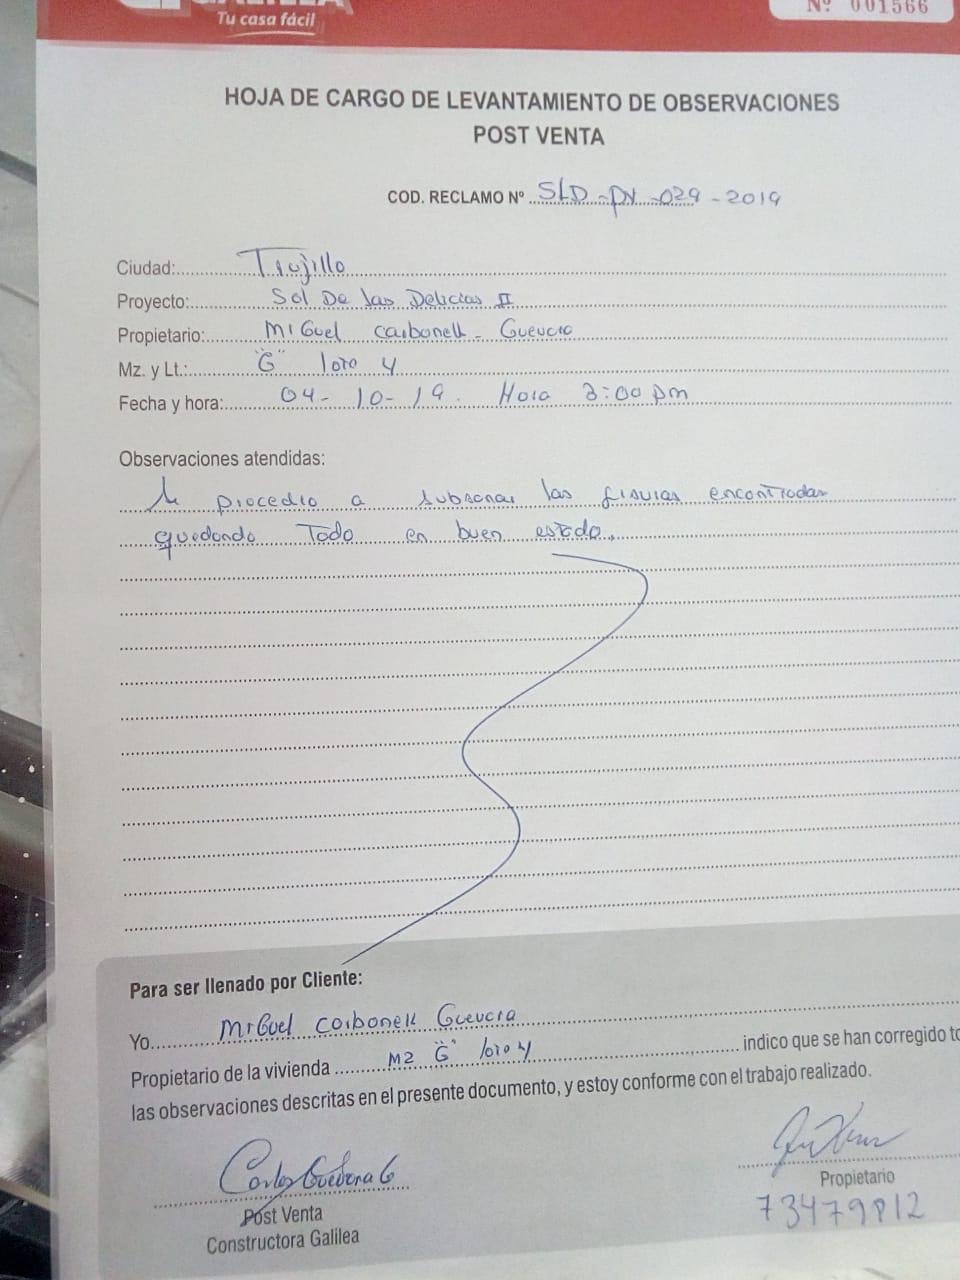 Tu casa fácil
Nº 001566
HOJA DE CARGO DE LEVANTAMIENTO DE OBSERVACIONES
POST VENTA
COD. RECLAMO Nº SLD-PV-029-2019
Ciudad: Trujillo
Proyecto: Sol De las Delicias II
Propietario: Miguel Carbonell Guevara
Mz. y Lt.: "G" lote 4
Fecha y hora: 04-10-19. Hora 3:00 pm
Observaciones atendidas:
Se procedio a subsanar las fisuras encontradas
quedando Todo en buen estado.
Para ser llenado por Cliente:
Yo Miguel Carbonell Guevara
Propietario de la vivienda Mz "G" lote 4 indico que se han corregido
las observaciones descritas en el presente documento, y estoy conforme con el trabajo realizado.
Carlos
Post Venta
Constructora Galilea
Propietario
73479812